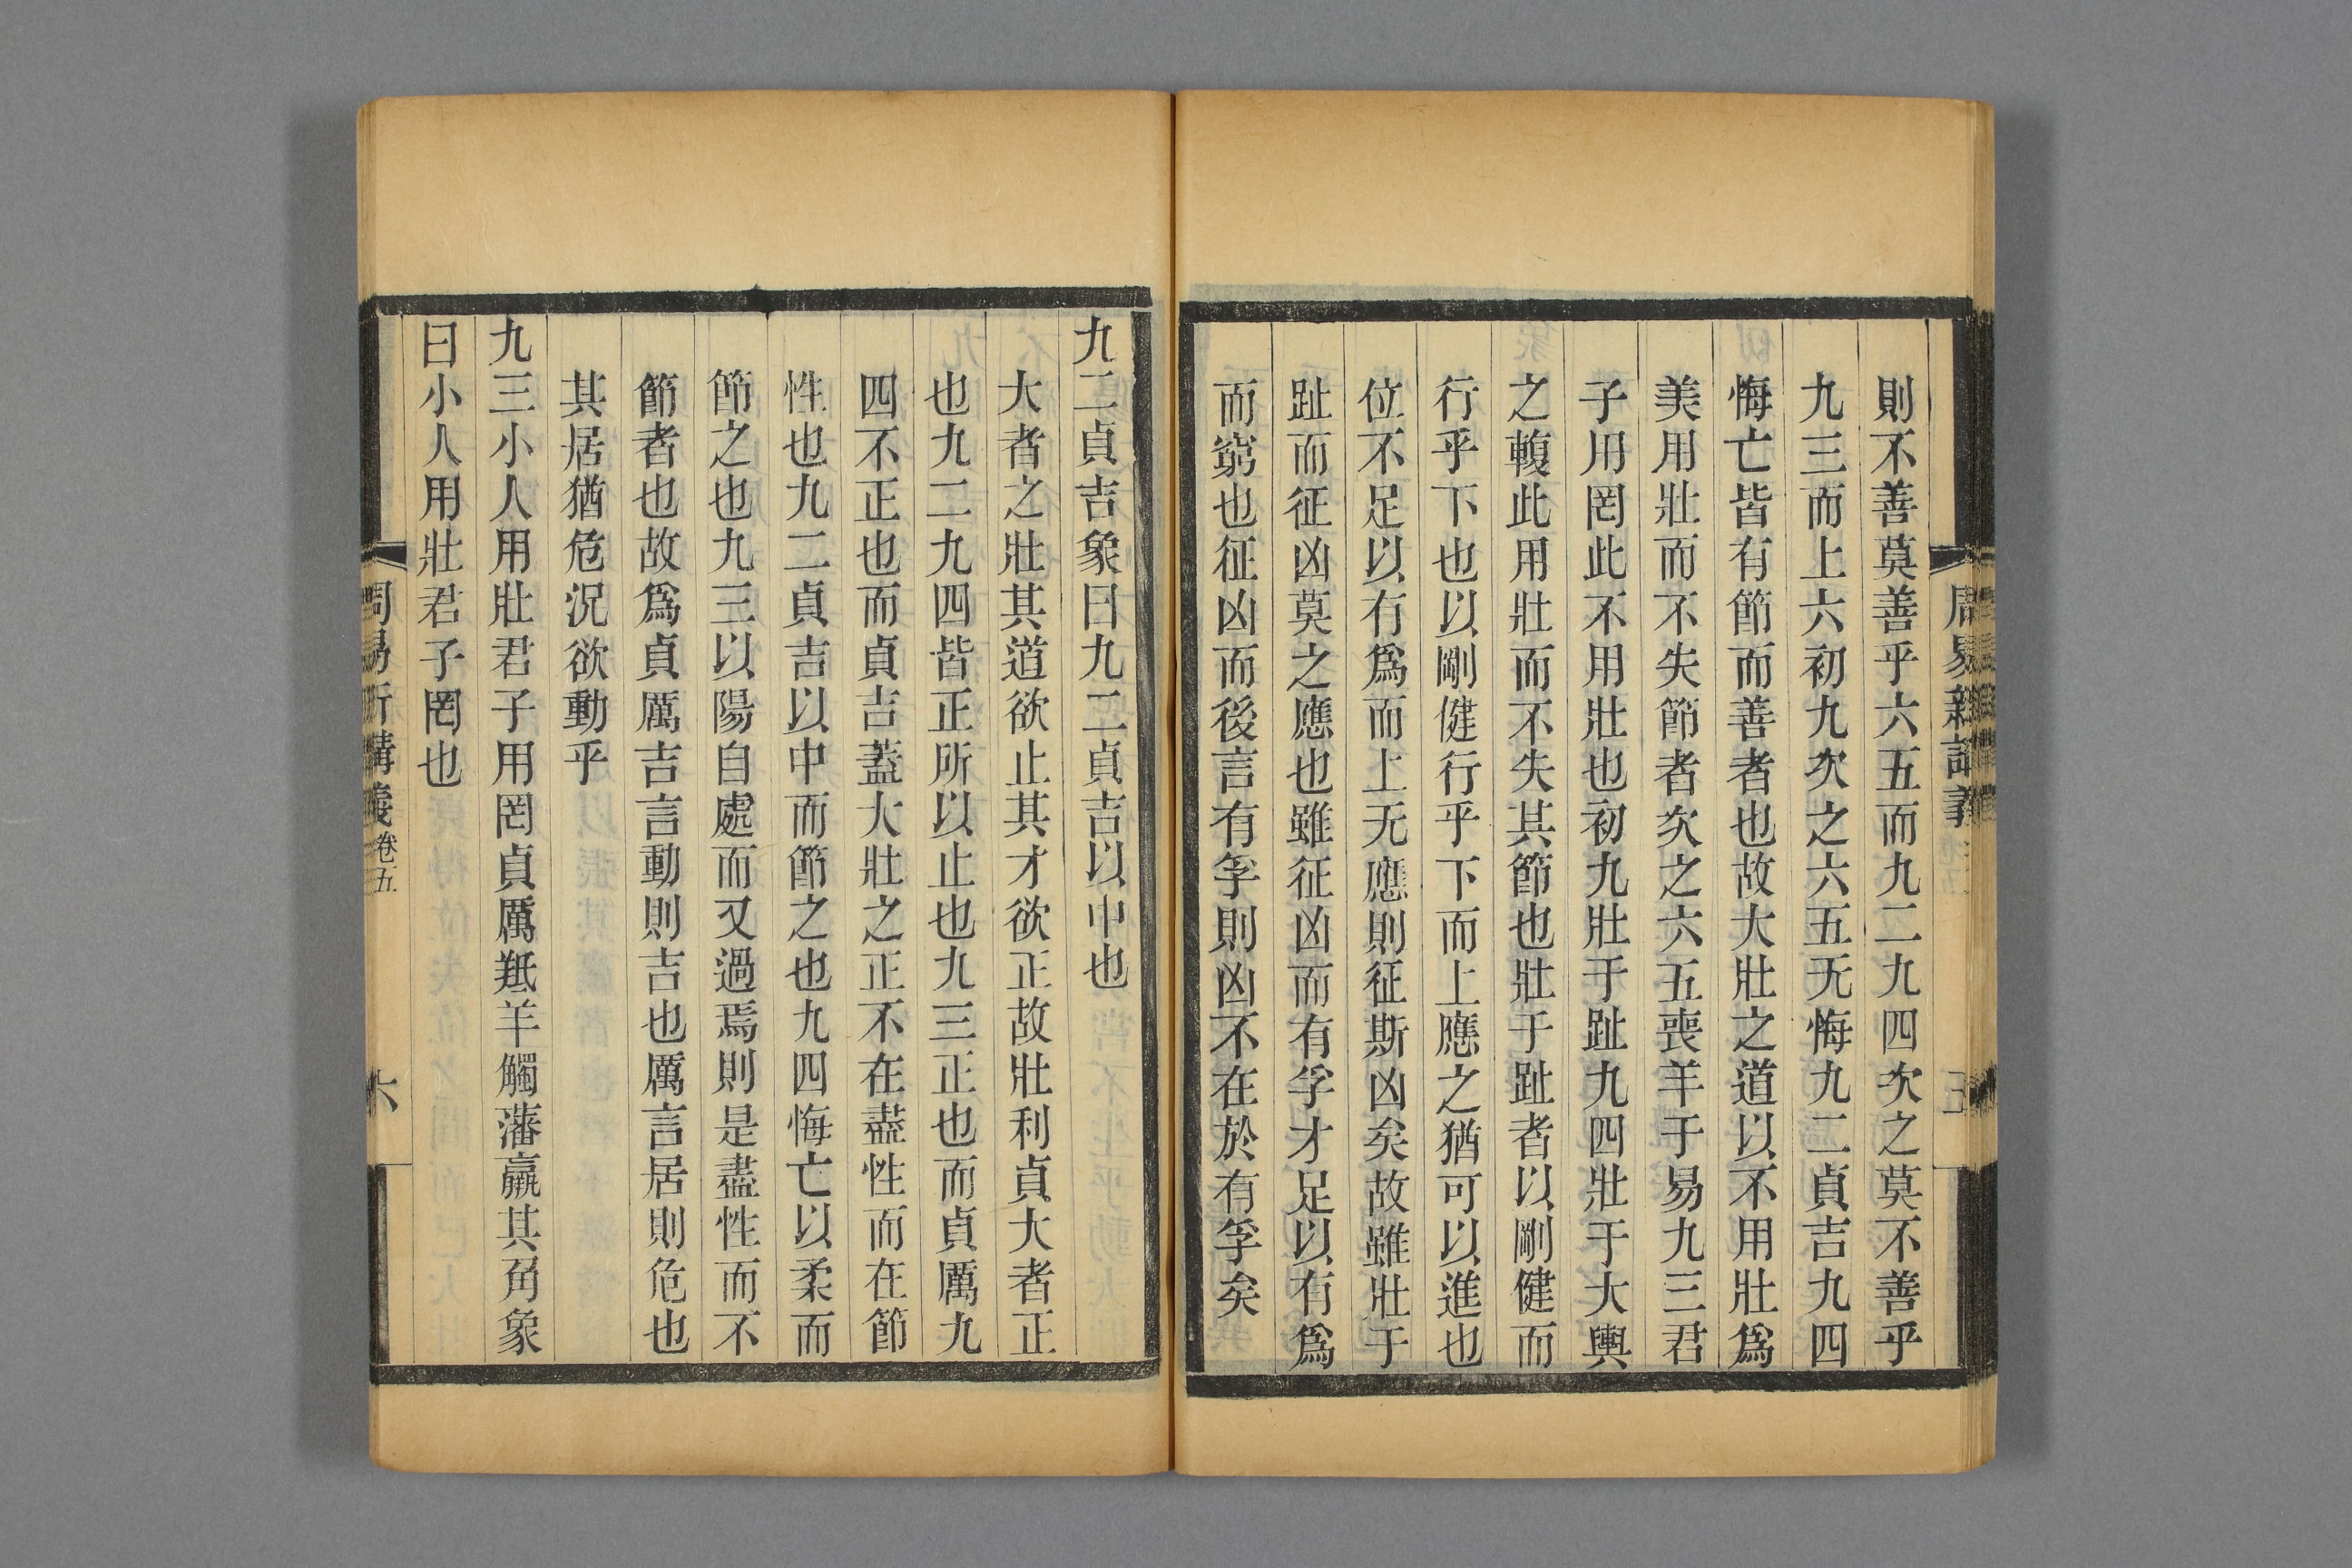 周易新講義
五
則不善莫善乎六五而九二九四次之莫不善乎
九三而上六初九次之六五无悔九二貞吉九四
悔亡皆有節而善者也故大壯之道以不用壯爲
美用壯而不失節者次之六五喪羊于易九三君
子用罔此不用壯也初九壯于趾九四壯于大輿
之輹此用壯而不失其節也壯于趾者以剛健而
行乎下也以剛健行乎下而上應之猶可以進也
位不足以有爲而上无應則征斯凶矣故雖壯于
趾而征凶莫之應也雖征凶而有孚才足以有爲
而窮也征凶而後言有孚則凶不在於有孚矣
九二貞吉象曰九二貞吉以中也
大者之壯其道欲止其才欲正故壯利貞大者正
也九二九四皆正所以止也九三正也而貞厲九
四不正也而貞吉蓋大壯之正不在盡性而在節
性也九二貞吉以中而節之也九四悔亡以柔而
節之也九三以陽自處而又過焉則是盡性而不
節者也故爲貞厲吉言動則吉也厲言居則危也
其居猶危況欲動乎
九三小人用壯君子用罔貞厲羝羊觸藩羸其角象
曰小人用壯君子罔也
周易新講義卷五
六